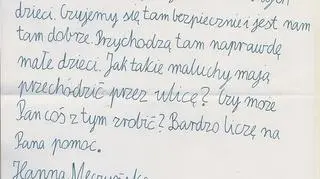 dzieci. Czujemy się tam bezpiecznie i jest nam
tam dobrze. Przychodzą tam naprawdę
małe dzieci. Jak takie maluchy mają
przechodzić przez ulicę? Czy może
Pan coś z tym zrobić? Bardzo liczę na
Pana pomoc.
Hanna